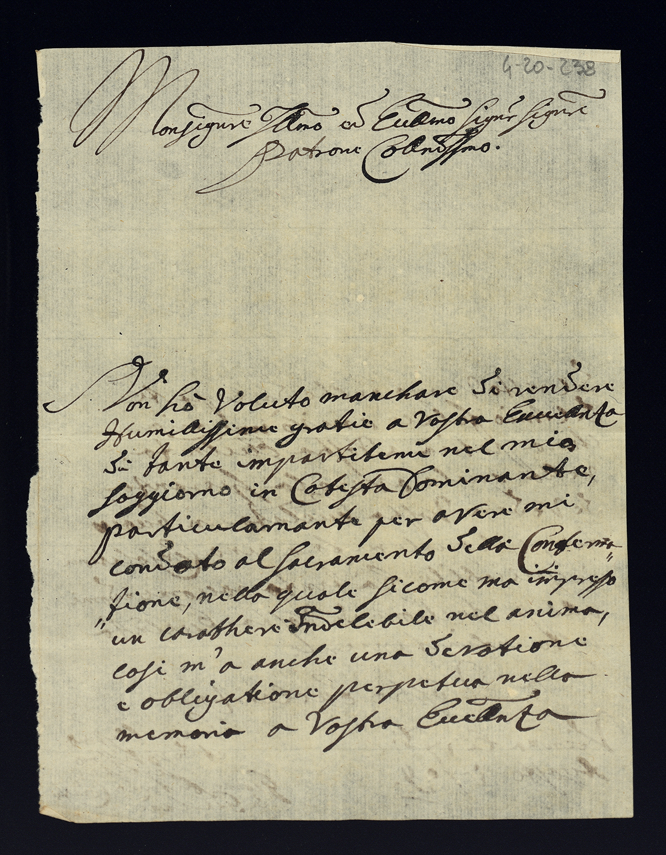 4-20-238
Monsignore Illmo ed Eccllmo Signr Signre
Patrone Collendissmo.
Non hò Voluto manchare di rendere
Humilissime gratie a Vostra Eccellenza
di tante impartitemi nel mio
soggiorno in Cotesta Dominante,
particularmante per avere mi
condoto al sacramento della Conferma
"tione, nella quale sicome ma impresso
"un carathere Indelebile nel anima,
cosi m'a anche una devotione
e obligatione perpetua nella
memoria a Vostra Eccellenza